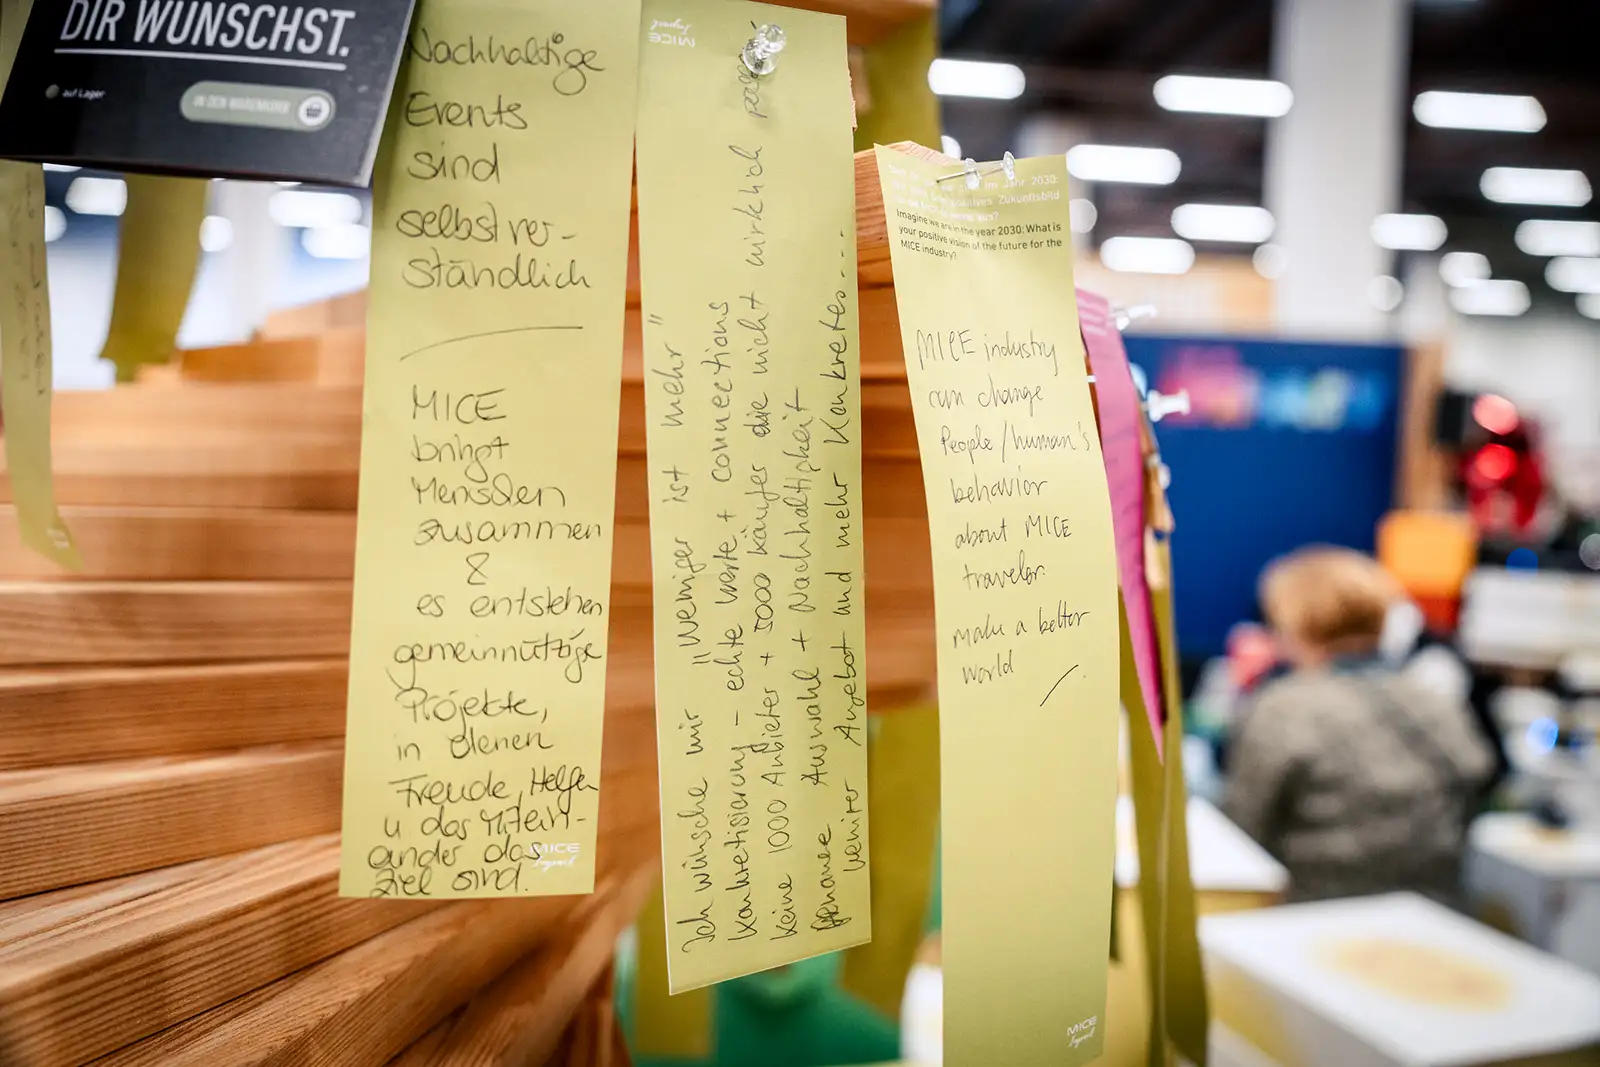 DIR WÜNSCHST.
auf Lager
IN DEN WARENKORB
Nachhaltige
Events
sind
selbstver-
ständlich
MICE
bringt
Menschen
zusammen
&
es entstehen
gemeinnützige
Projekte,
in denen
Freude, Helfen
u das Mitein-
ander das
Ziel sind.
MICE
Impact
MICE
Impact
Ich wünsche mir "Weniger ist mehr"
Konkretisierung - echte Werte + connections
Keine 1000 Anbieter + 5000 Käufer die nicht wirklich
Genauere Auswahl + Nachhaltigkeit
weniger Angebot und mehr Konkretes...
im Jahr 2030:
positives Zukunftsbild
Imagine we are in the year 2030: What is
your positive vision of the future for the
MICE industry?
MICE industry
can change
People/human's
behavior
about MICE
traveler.
make a better
world
MICE
Impact